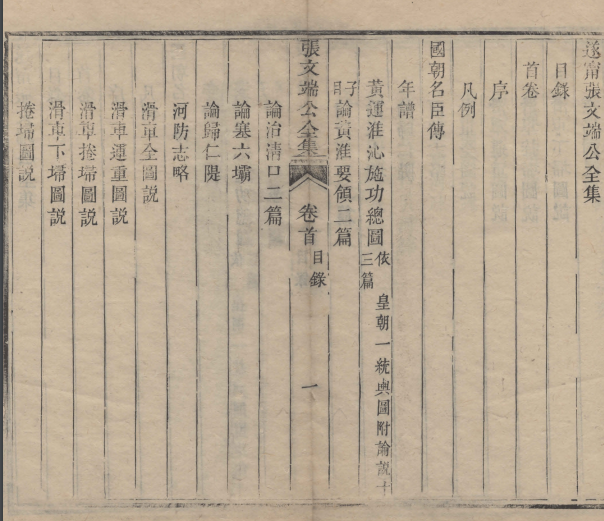 遂甯張文端公全集
目錄
首卷
序
凡例
國朝名臣傳
年譜
黃運淮沁施功總圖依 皇朝一統輿圖附論說十三篇
子目論黃淮要領二篇
張文端公全集 卷首 目錄 一
論治清口二篇
論塞六壩
論歸仁隄
河防志略
滑車全圖說
滑車運重圖說
滑車捲埽圖說
滑車下埽圖說
捲埽圖說